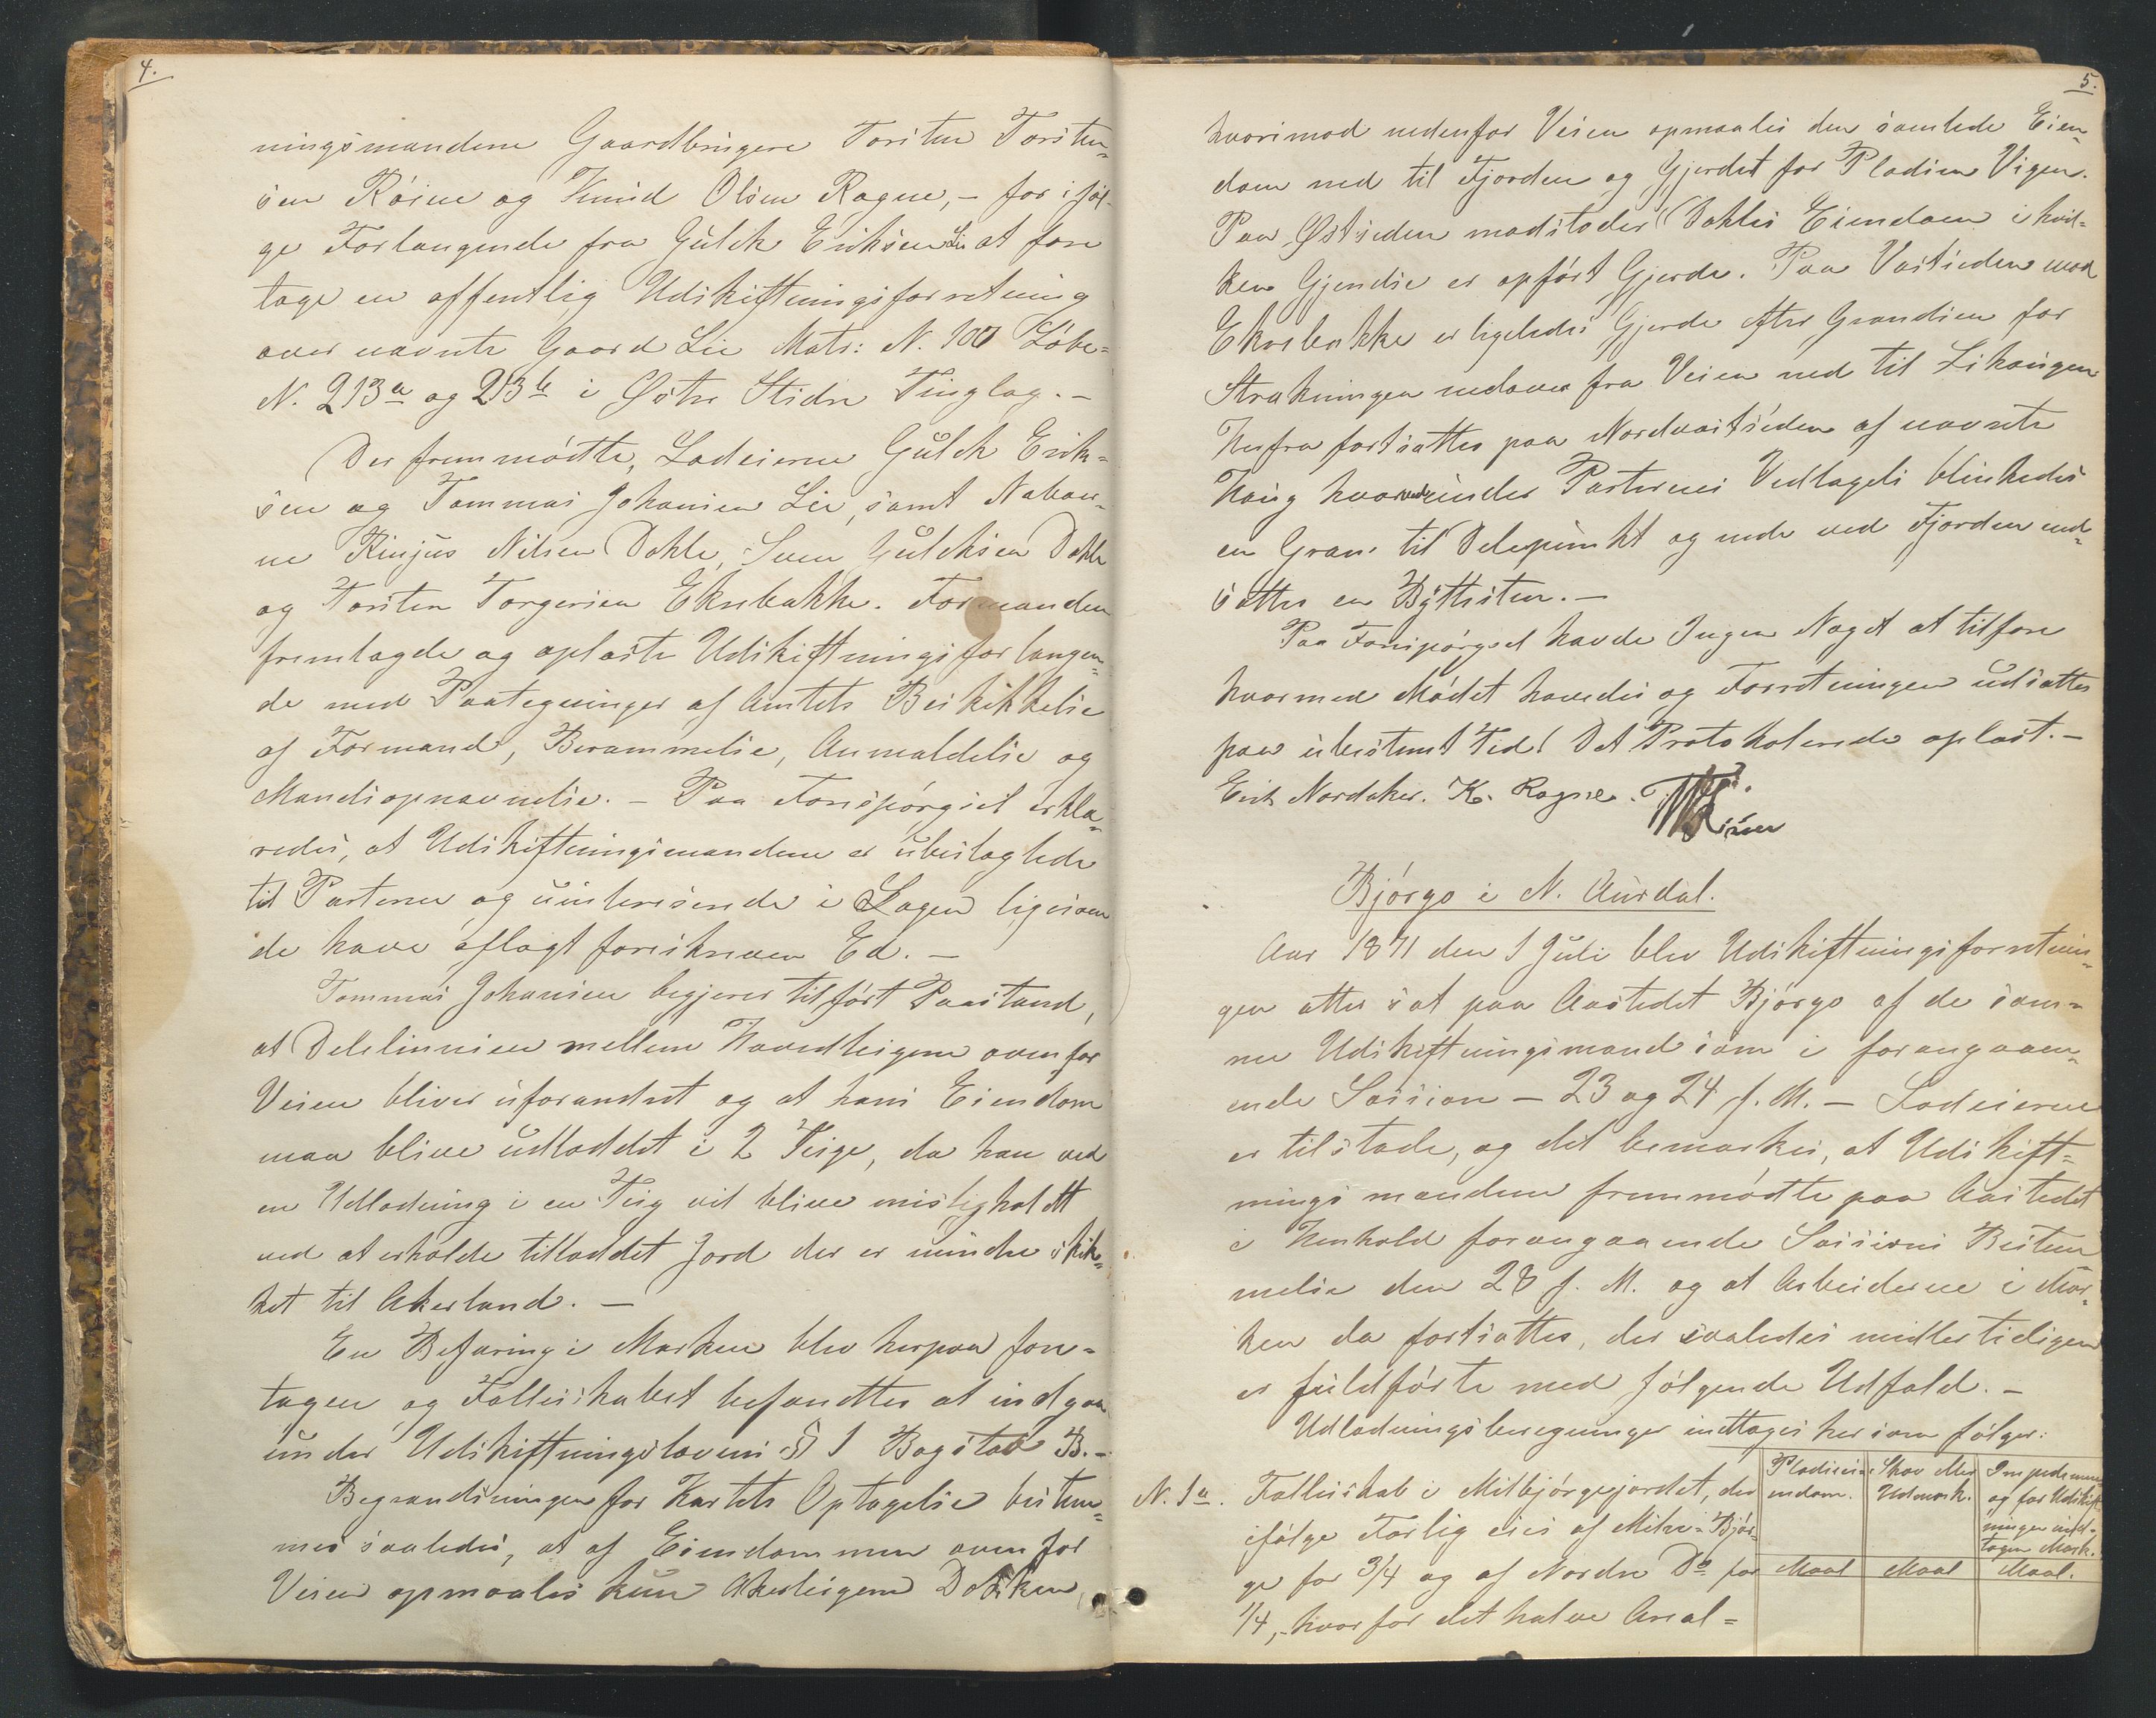 4.
ningsmændene Gaardbrugere Torsten Torsten-
sen Röine og Knud Olsen Ragne, – for i föl-
ge Forlangende fra Gulek Eriksen Lie at fore
tage en offentlig Udskiftningsforretning
over nævnte Gaard Lie Matr: N. 100 Löbe-
N. 213a og 213b i Östre Slidre Tinglag. –
Der fremmödte, Lodeierne Gulek Erik-
sen og Tommas Johansen Lie, samt Naboer-
ne Kinjus Nilsen Dokle, Sven Guleksen Dokle
og Torsten Torgersen Ekrebakke. Formanden
fremlagde og oplæste Udskiftningsforlangen-
de med Paategninger af Amtets Beskikkelse
af Formand, Berammelse, Anmældelse og
Mandsopnævnelse. – Paa Forespörgsel erklæ-
redes, at Udskiftningsmændene er ubeslægtede
til Parterne og uinteresserede i Sagen ligesom
de have aflagt foreskreven Ed. –
Tommas Johansen begjerer tilfört Paastand,
at Delelinnien mellem Hovedteigene ovenfor
Veien bliver uforandret og at hans Eiendom
maa blive udloddet i 2 Teige, da han ved
en Udlodning i en Teig vil blive misligholdt
ved at erholde tilloddet Jord der er mindre skik-
ket til Akerland. –
En Befaring i Marken blev herpaa fore-
tagen og Fællesskabet befandtes at indgaa
under Udskiftningslovens § 1 Bogstav B. –
Begrændsningen for Kartets Optagelse bestem-
mes saaledes, at af Eiendommen ovenfor
Veien opmaales kun Akerteigene Dokken,
5.
hvorimod nedenfor Veien opmaales den samlede Eien-
dom ned til Fjorden og Gjerdet for Pladsen Vigen.
Paa Östsiden modstöder Dokles Eiendom i hvil-
ken Gjendse er opfört Gjerde. Paa Vestsiden mod
Ekrebakke er ligeledes Gjerde efter Grændsen for
Strækningen nedover fra Veien ned til Lihaugen
Herfra fortsættes paa Nordvestsiden af nævnte
Haug hvor under Parternes Vedtagels blinkedes
en Gran til Delepunkt og nede ved Fjorden ned-
sattes en Byttesten. –
Paa Forespörgsel havde Ingen Noget at tilföre
hvormed Mödet hævedes og Forretningen udsattes
paa ubestemt Tid. Det Protokolerede oplæst. –
Erik Nordaker. K. Ragne. T. T. Röine
Björgo i N. Aurdal.
Aar 1871 den 1 Juli blev Udskiftningsforretnin-
gen atter sat paa Aastedet Björgo af de sam-
me Udskiftningsmænd som i foregaaen-
ende Session – 23 og 24 f. M. – Lodeierne
er tilstede, og det bemærkes, at Udskift-
ningsmændene fremmödte paa Aastedet
i Henhold foregaaende Sessions Bestem
melse den 28 f. M. og at Arbeiderne i Mar-
ken da fortsattes, der saaledes midlertidigen
er fuldförte med fölgende Udfald. –
Udlodningsberegninger indtages her som fölger:
N. 1a. Fællesskab i Milbjörgejordet, der
ifölge Forlig eies af Mitre-Björ-
ge for 3/4 og af Nordre Do for
1/4, – hvorfor det halve Areal-
Pladseien-
endom.
Skov eller
Udmark.
Impedimen
og for Udskift
ningen und-
tagen Mark.
Maal Maal Maal.